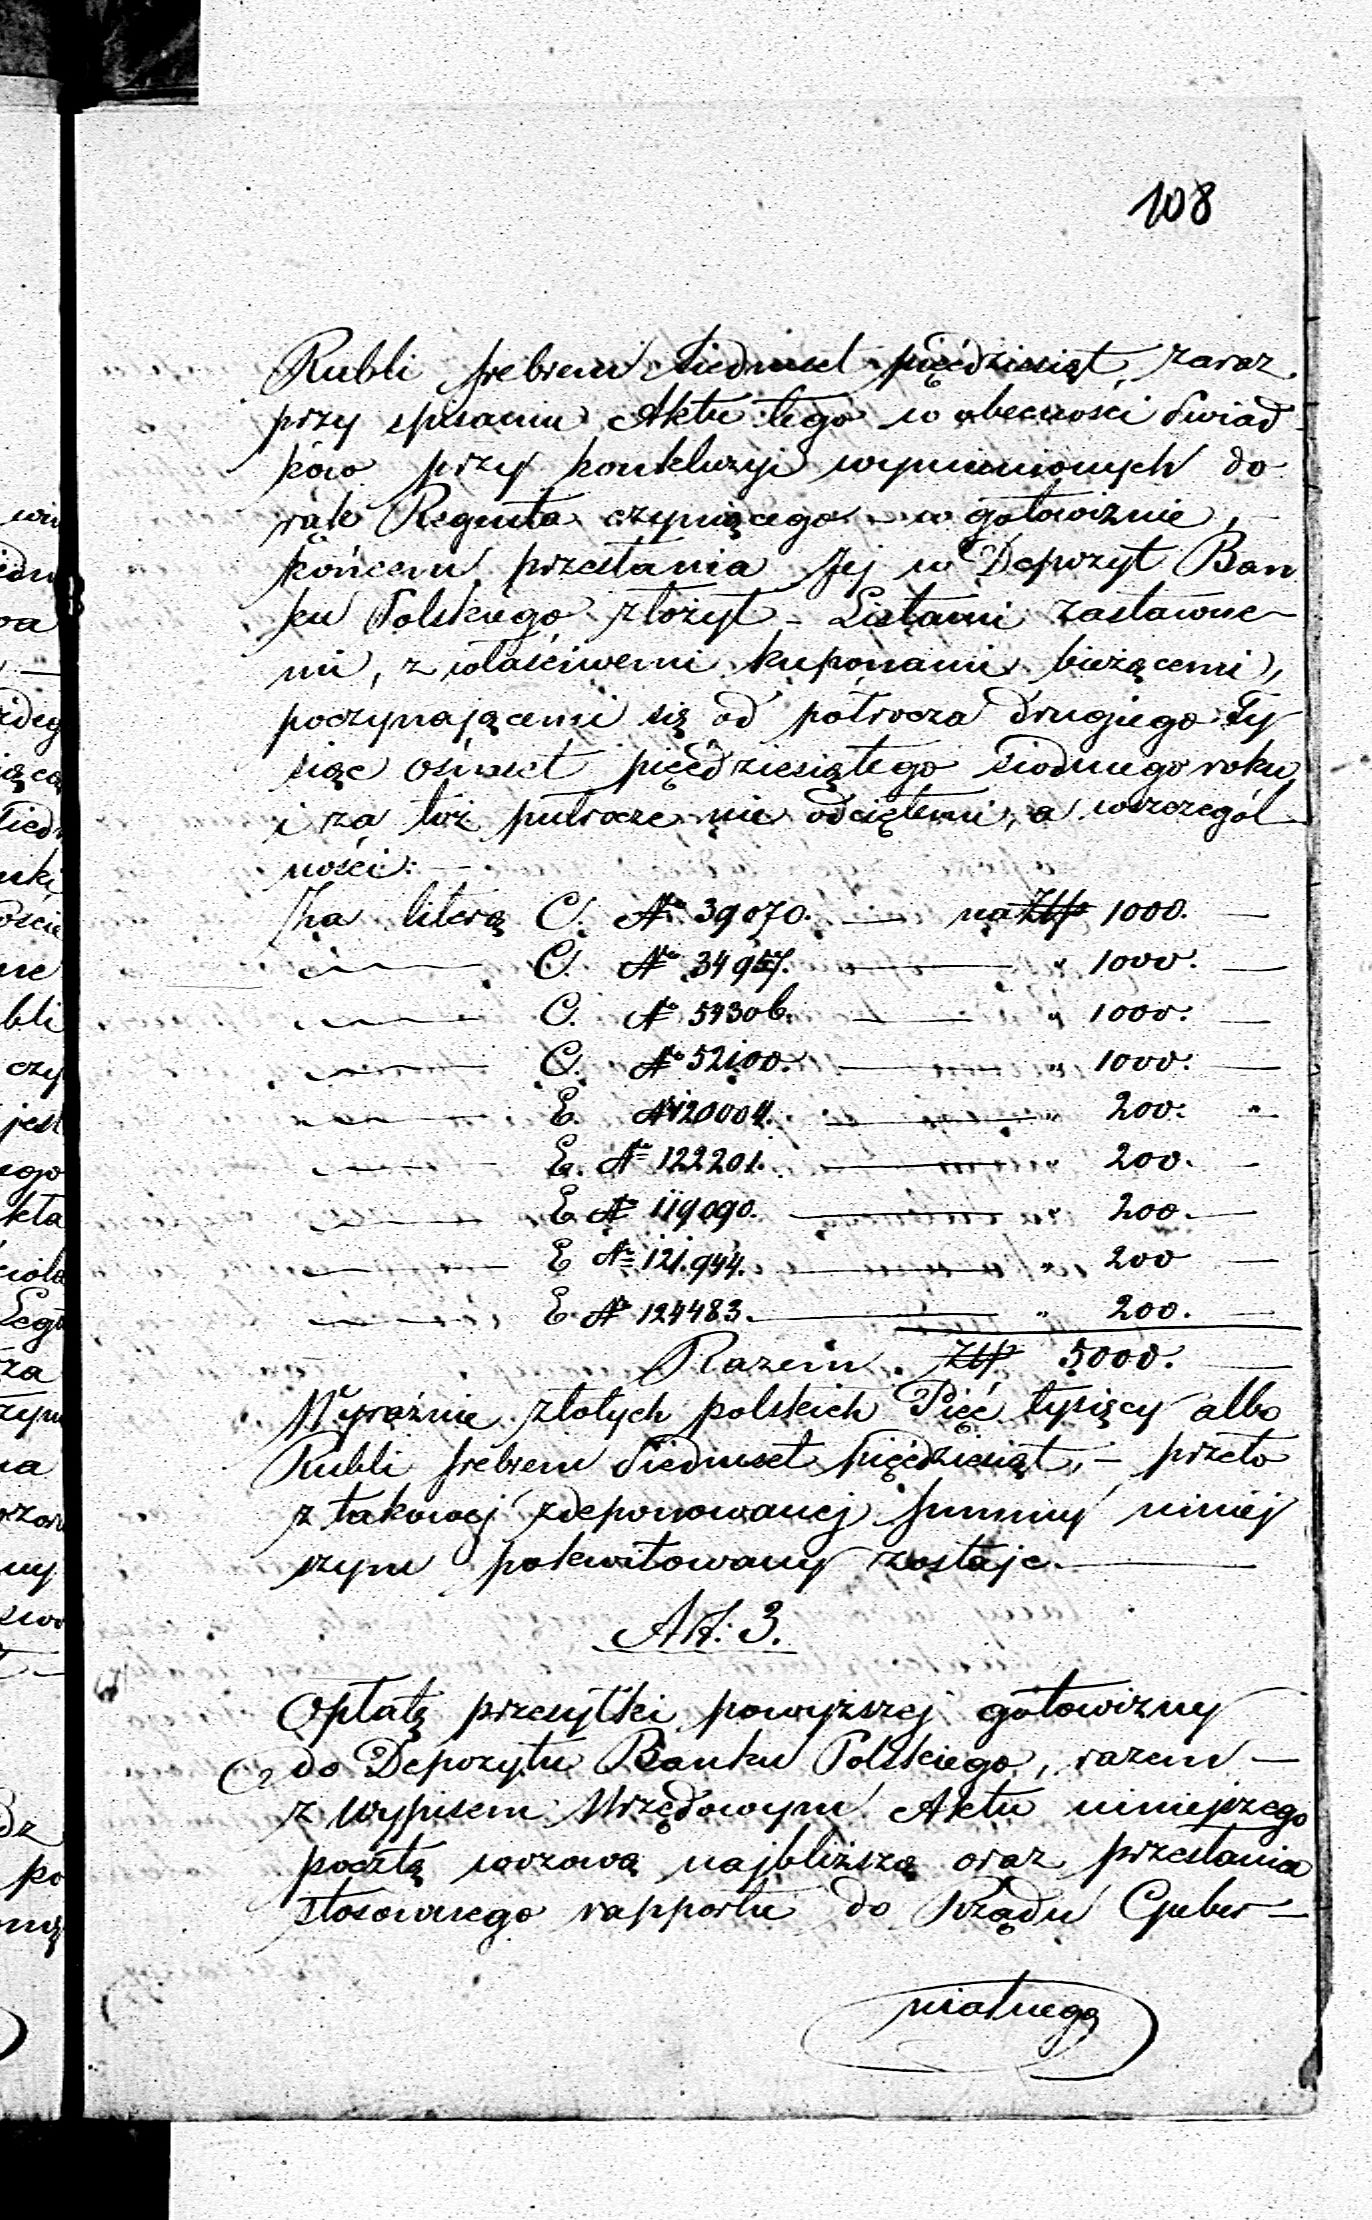 108
Rubli srebrem Siedmset pięćdziesiąt, zaraz
przy spisaniu Aktu tego w obecności Swiad
ków przy konkluzyi wymienionych do
rąk Regenta czyniącego – w gotowiznie, –
końcem przesłania Jej w Depozyt Ban
ku Polskiego złożył – Listami zastawne–
mi, z właściwemi kuponami bieżącemi,
poczynającemi się od półrocza drugiego Ty
siąc ośmset pięćdziesiątego siodmego roku,
i za toż półrocze nie odciętemi, a wszczegól
ności: –
Na literą C. № 39070. — na Złp 1000. —
— C. № 34957. — " 1000. —
— C. № 59306. — " 1000. —
— C. № 52100. — " 1000. —
— E. № 120004. — " 200. "
— E. № 122201. — " 200. —
— E № 119090. — " 200. —
— E № 121.944. — " 200 —
— E № 124483. — " 200. —
Razem . Złp 5000. —
Wyraźnie złotych polskich Pięć tysięcy albo
Rubli srebrem Siedmset pięćdziesiąt, – przeto
z takowej zdeponowanej summy niniej
szym pokwitowany zostaje. —
Art: 3.
Opłatę przesyłki powyższej gotowizny
do Depozytu Banku Polskiego, razem –
z wypisem Urzędowym Aktu niniejszego
pocztą wozową najbliższą oraz przesłania
stosownego rapportu do Rządu Guber–
nialnego